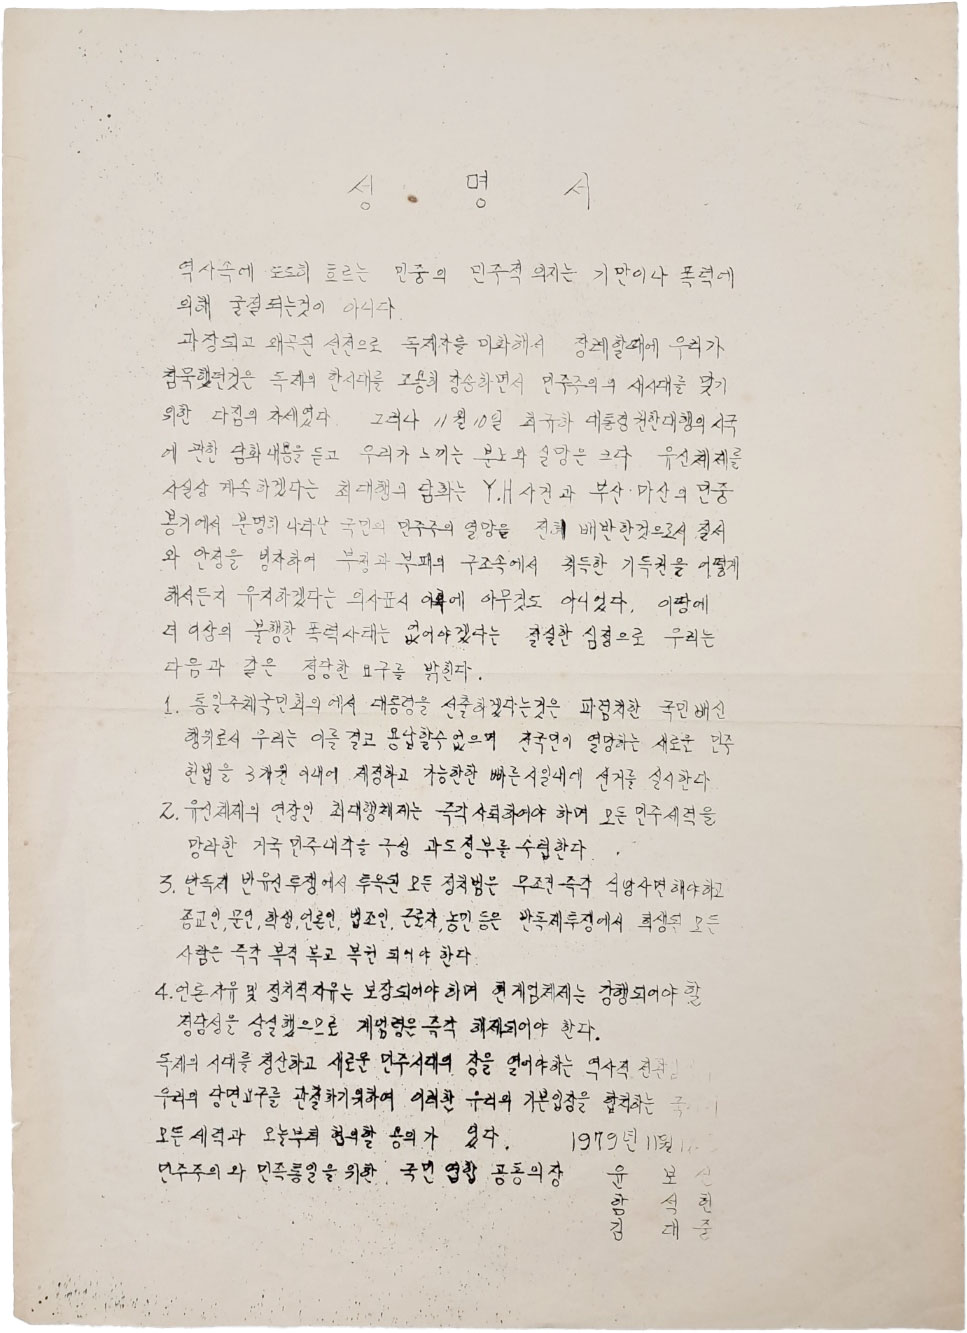 성 명 서
역사속에 도도히 흐르는 민중의 민주적 의지는 기만이나 폭력에
의해 굴절되는것이 아니다.
과장되고 왜곡된 선전으로 독재자를 미화해서 장례할때에 우리가
침묵했던것은 독재의 한시대를 조용히 장송하면서 민주주의의 새시대를 맞기
위한 다짐의 자세였다. 그러나 11월 10일 최규하 대통령권한대행의 시국
에 관한 담화내용을 듣고 우리가 느끼는 분노와 실망은 크다 유신체제를
사실상 계속하겠다는 최대행의 담화는 Y.H사건과 부산·마산의 민중
봉기에서 분명히 나타난 국민의 민주주의 열망을 전혀 배반한것으로서 질서
와 안정을 빙자하여 부정과 부패의 구조속에서 취득한 기득권을 어떻게
해서든지 유지하겠다는 의사표시 이외에 아무것도 아니었다. 이땅에
더 이상의 불행한 폭력사태는 없어야겠다는 절실한 심정으로 우리는
다음과 같은 정당한 요구를 밝힌다.
1. 통일주체국민회의에서 대통령을 선출하겠다는것은 파렴치한 국민배신
행위로서 우리는 이를 결코 용납할수없으며 전국민이 열망하는 새로운 민주
헌법을 3개월 이내에 제정하고 가능한한 빠른시일내에 선거를 실시한다
2. 유신체제의 연장인 최대행체제는 즉각사퇴하여야 하며 모든 민주세력을
망라한 거국민주내각을 구성 과도정부를 수립한다.
3. 반독재 반유신투쟁에서 투옥된 모든 정치범은 무조건 즉각 석방사면해야하고
종교인, 문인, 학생, 언론인, 법조인, 근로자, 농민 등은 반독재투쟁에서 희생된 모든
사람은 즉각 복직 복교 복권 되어야 한다
4. 언론자유 및 정치적자유는 보장되어야 하며 현계엄체제는 강행되어야 할
정당성을 상실했으므로 계엄령은 즉각 해제되어야 한다.
독재의 시대를 청산하고 새로운 민주시대의 장을 열어야하는 역사적
우리의 당면요구를 관철하기위하여 이러한 우리의 기본입장을 합치하는
모든 세력과 오늘부터 협의할 용의가 있다. 1979년 11월
민주주의와 민족통일을 위한 국민연합 공동의장 윤 보 선
함 석 헌
김 대 중